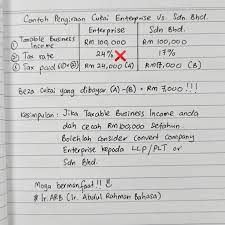 Contoh Pengiraan Cukai Enterprise Vs. Sdn Bhd.
Enterprise Sdn. Bhd.
① Taxable Business Income RM 100,000 RM 100,000
② Tax rate 24% ❌ 17%
③ Tax paid RM 24,000 (A) RM17,000 (B)
Beza Cukai yang dibayar (A)-(B) = RM 7,000 !!!
Kesimpulan : Jika Taxable Business Income anda
dah cecah RM100,000 setahun.
Bolehlah consider convert company
Enterprise kepada LLP/PLT or
Sdn Bhd.
Moga bermanfaat!!
Ir. ARB (Ir. Abdul Rahman Bahasa)